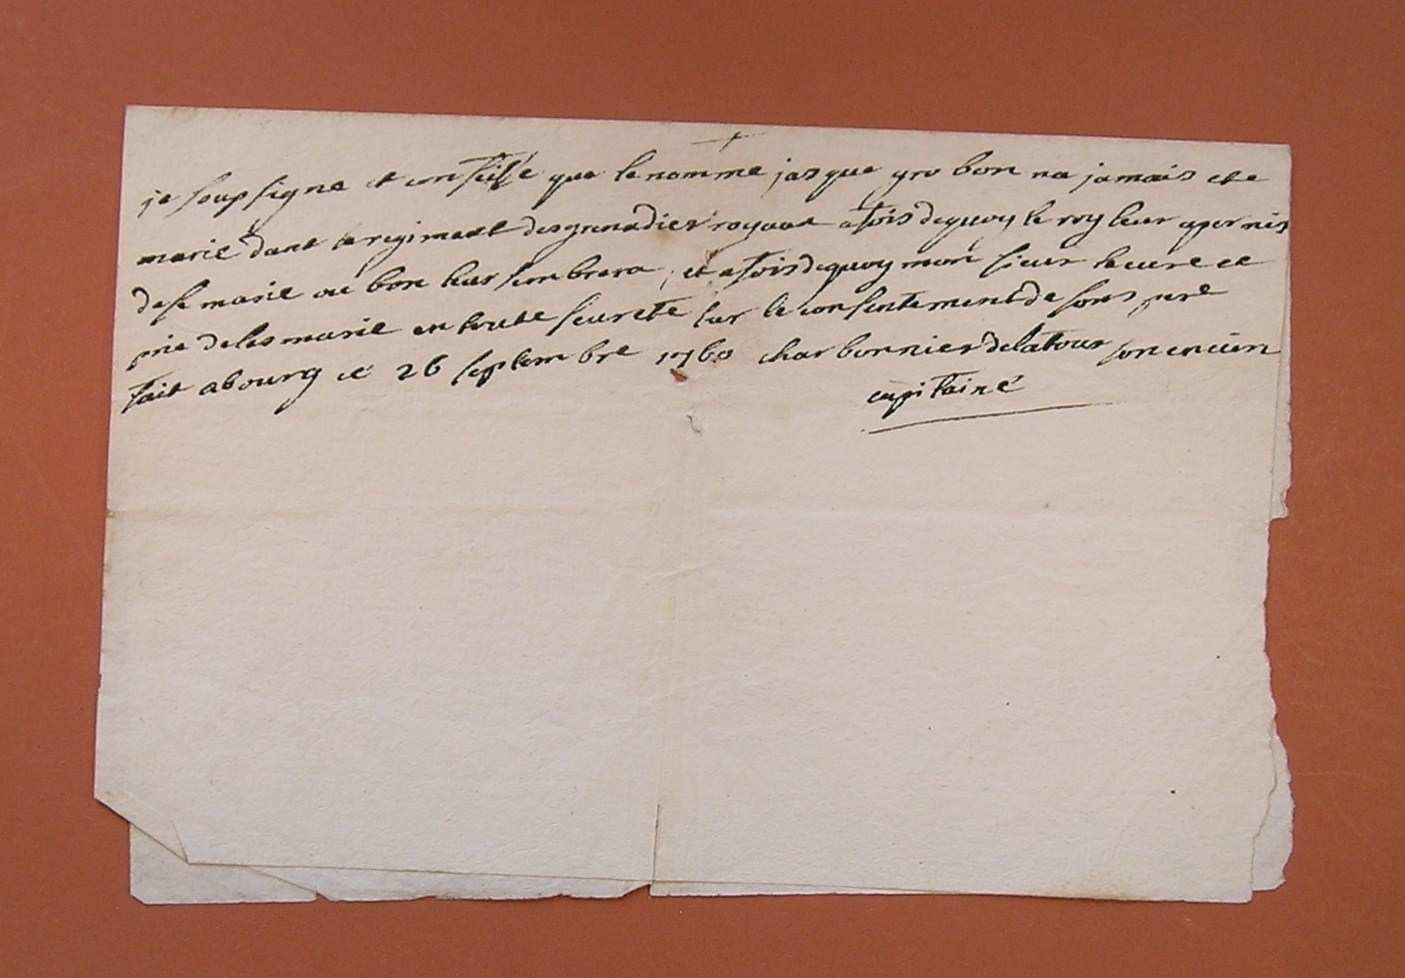 je soupsigne et sertifié que le nomme jasque gro bon na jamais ete
marié dant le regiment des grenadier royaut a fois de quoy le roy leur a permis
de se marie ou bon leur semblera, et a fois de quoy monsieur le cure et
prie de les marie en toute seureté sur le consentement de sons pere
fait a bourg ce 26 septembre 1760 charbonnier de la tour son encien
capitaine